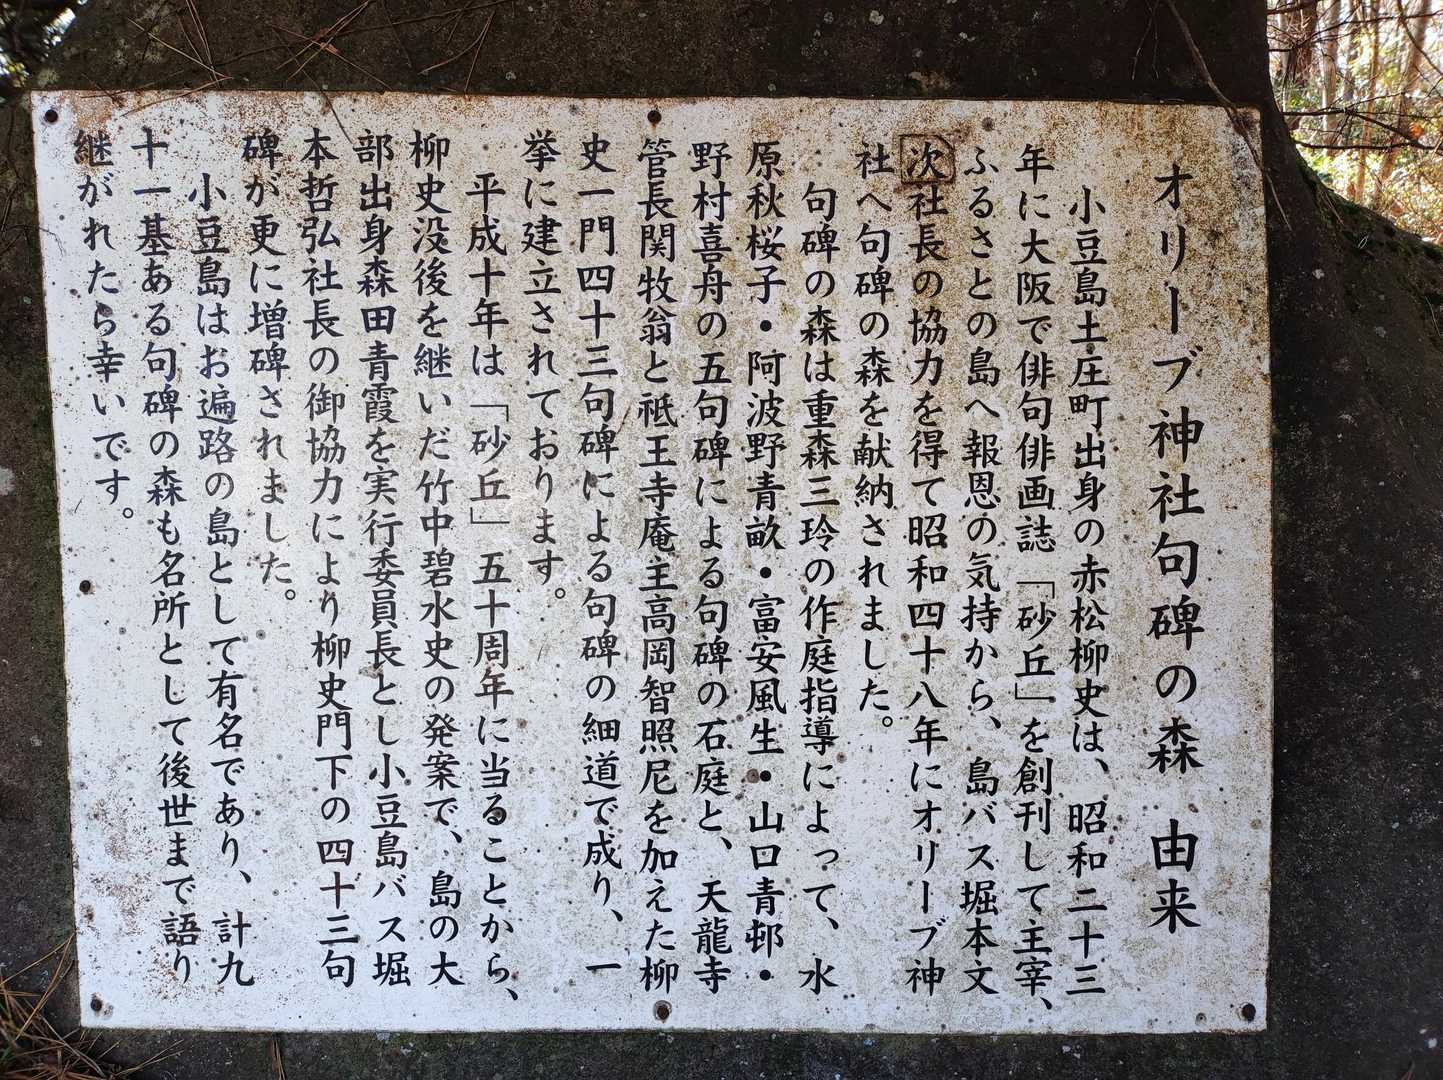 オリーブ神社句碑の森 由来
小豆島土庄町出身の赤松柳史は、昭和二十三
年に大阪で俳句俳画誌「砂丘」を創刊して主宰、
ふるさとの島へ報恩の気持から、島バス堀本文
次社長の協力を得て昭和四十八年にオリーブ神
社へ句碑の森を献納されました。
句碑の森は重森三玲の作庭指導によって、水
原秋桜子・阿波野青畝・富安風生・山口青邨・
野村喜舟の五句碑による句碑の石庭と、天龍寺
管長関牧翁と祇王寺庵主高岡智照尼を加えた柳
史一門四十三句碑による句碑の細道で成り、一
挙に建立されております。
平成十年は「砂丘」五十周年に当ることから、
柳史没後を継いだ竹中碧水史の発案で、島の大
部出身森田青霞を実行委員長とし小豆島バス堀
本哲弘社長の御協力により柳史門下の四十三句
碑が更に増碑されました。
小豆島はお遍路の島として有名であり、計九
十一基ある句碑の森も名所として後世まで語り
継がれたら幸いです。